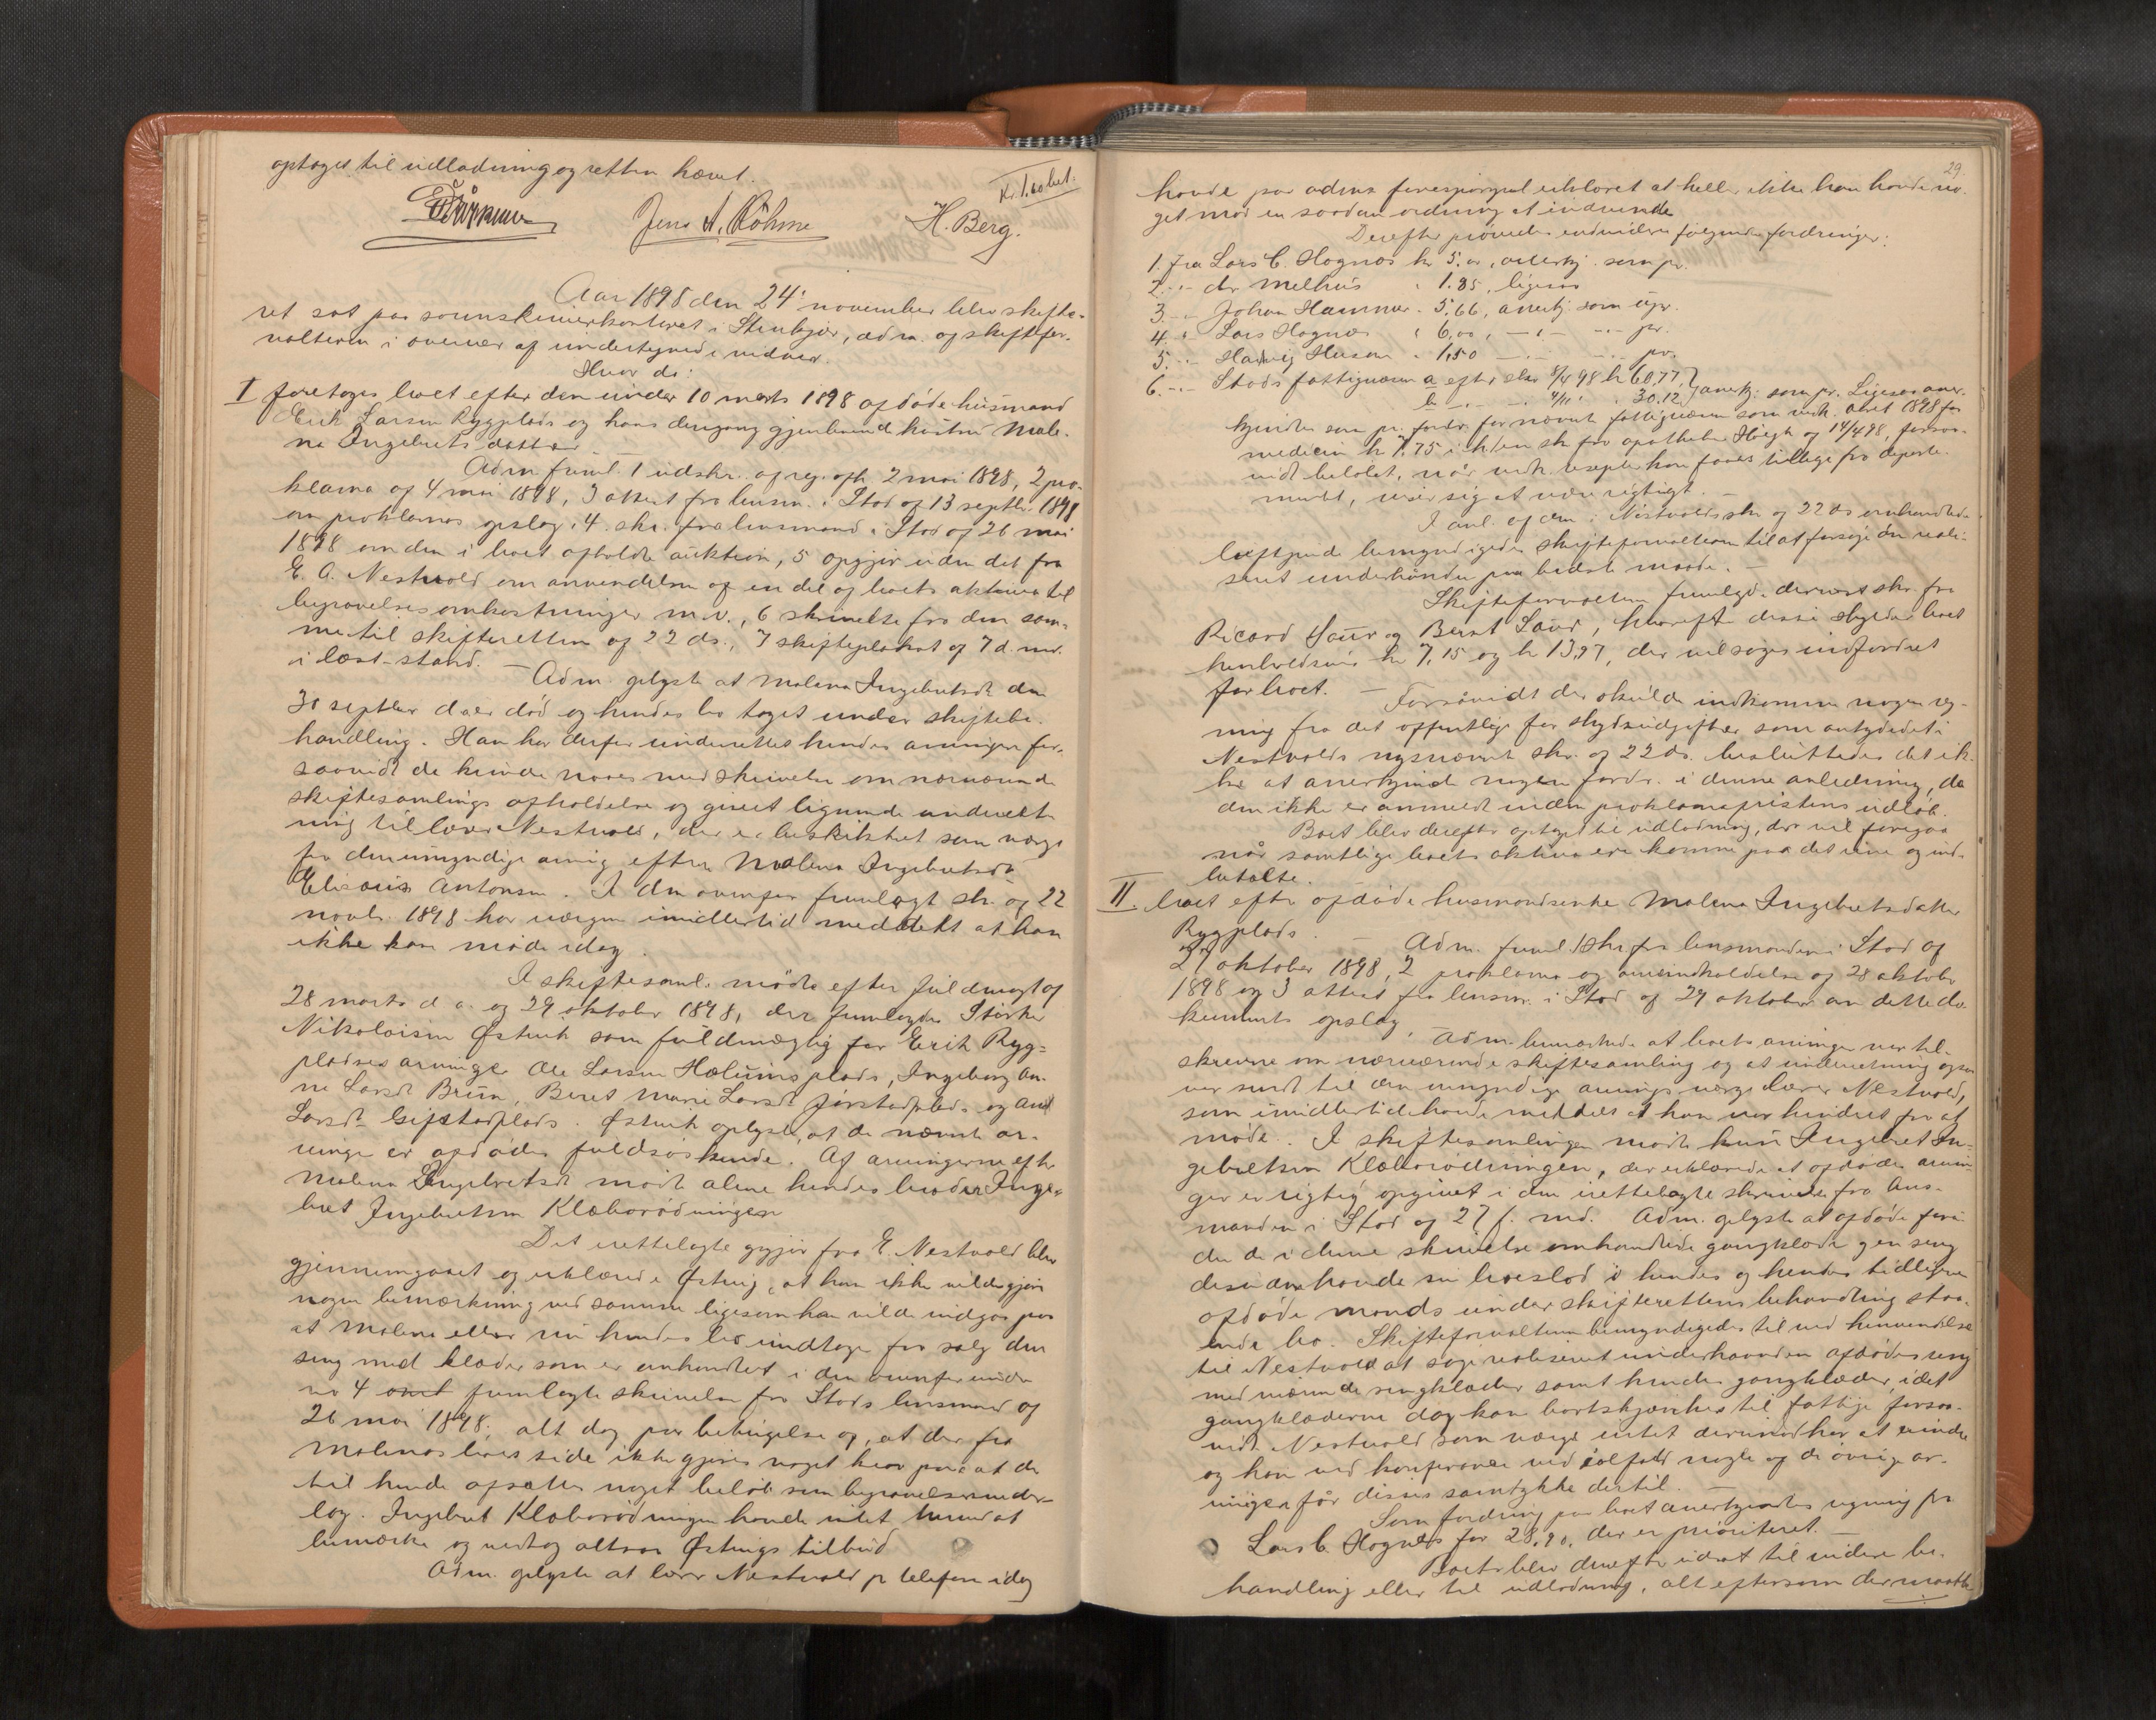 optages til udlodning og retten hævet.
Kr. 1.60 bet.
Jens A. Röhme H. Berg.
Aar 1898 den 24' november blev skifte-
ret sat paa sorenskriverkontoret i Stenkjær, adm. af skiftefor-
valteren i overvær af undertegnede vidner.
Hvor da:
I foretoges boet efter den under 10 marts 1898 afdøde husmand
Erik Larsen Rygplads og hans dengang gjenlevende hustru Male-
na Ingebrets datter
Adm freml. 1 udskr. af reg. afh 2 mai 1898, 2 pro-
klama af 4 mai 1898, 3 attest fra lensm. i Stod af 13 septbr. 1898
om proklamas opslag, 4. skr. fra lensmand i Stod af 26 mai
1898 om den i boet afholdte auktion, 5 opgjør uden dat fra
E. A. Nestvold om anvendelsen af en del af boets aktiva til
begravelsesomkostninger m.v., 6 skrivelse fra den sam-
me til skifteretten af 22 ds., 7 skifteplakat af 7 d. md.
i læst stand. – Adm. oplyste at Malena Ingebretsdt den
30 septbr d a er død og hendes bo taget under skiftebe-
handling. Han har derfor underrettet hendes arvinger for-
saavidt de kunde naaes med skrivelse om nærværende
skiftesamlings afholdelse og givet lignende underret-
ning til lærer Nestvold, der er beskikket som værge
for den umyndige arving efter Malena Ingebretsdt
Eliseus Antonsen. I den ovenfor fremlagt skr. af 22
novbr. 1898 har værgen imidlertid meddelt at han
ikke kan møde idag.
I skiftesaml. mødte efter fuldmagt af
28 marts d a. og 29 oktober 1898, der fremlagdes Størker
Nikolaisen Østvik som fuldmægtig for Erik Ryg-
pladses arvinger Ole Larsen Hælumsplads, Ingeborg An-
na Larsdt Brun, Beret Marie Larsdt Jørstadplads og Ane
Larsdt Gifstadplads. Østvik oplyste, at de nævnte ar-
vinger er afdødes fuldsøskende. Af arvingerne efter
Malena Ingebretsdt mødte alene hendes broder Inge-
bret Ingebretsen Klæborødningen
Det irettelagte opgjør fra E. Nestvold blev
gjennemgaaet og erklærede Østvig, at han ikke vilde gjøre
nogen bemærkning ved samme ligesom han vilde indgaa paa
at Malena eller nu hendes bo undtoges fra salg den
seng med klæder som er omhandlet i den ovenfor under
no 4 fremlagte skrivelse fra Stods lensmand af
26 mai 1898, alt dog paa betingelse af, at der fra
Malenas boes side ikke gjøres noget krav paa at der
til hende afsættes noget beløb som begravelsesveder-
lag. Ingebret Klæborødningen havde intet herved at
bemærke og vedtog altsaa Østvigs tilbud
Adm. oplyste at lærer Nestvold pr telefon idag
29.
havde paa adms forespørgsel erklæret at heller ikke han havde no-
get mod en saadan ordning at indvende
Derefter prøvedes endvidere følgende fordringer:
1. fra Lars C. Hognes kr 5.00, anerkj. som pr.
2. -"- dr Melhus " 1.85, ligesaa
3. -"- Johan Hammer " 5.66, anerkj. som upr.
4. -"- Lars Hognes " 6,00, -"- -"- pr.
5. -"- Hedvig Husan " 1,50 -"- -"- pr.
6. -"- Stods fattigvæsen a efter skr 8/4 98 kr 60,77,
b -"- -"- 4/11 " 30.12 } anerkj. som pr. Ligesaa aner-
kjendtes som pr. fordr. for nævnte fattigvæsen som vedk. aaret 1898 for
medicin kr 7.75 i h. t. en skr fra apotheker Høegh af 14/4 98, forsaa-
vidt beløbet, naar vedk. recepter kan faaes tilbage fra departe-
mentet, viser sig at være rigtigt. –
I anl. af den i Nestvolds skr af 22 ds omhandlede
bemyndigedes skifteforvalteren til at forsøge den reali-
seret underhaanden paa bedste maade. –
Skifteforvalteren freml. derværst skr. fra
Ricard Saur og Bernt Saur, hvorefter disse skylder boet
henholdsvis kr 7,15 og kr 13,97, der vil søges indfordret
for boet. – Forsaavidt der skulde indkomme nogen reg-
ning fra det offentlige for skydsudgifter som antydedet i
Nestvolds nysnævnte skr. af 22 ds. besluttedes det ik-
ke at anerkjende nogen fordr. i denne anledning, da
den ikke er anmeldt inden proklamafristens udløb.
Boet blev derefter optaget til udlodning, der vil foregaa
naar samtlige boets aktiva ere komne paa det rene og ind-
betalte.
II. boet efter afdøde husmandsenke Malena Ingebretsdatter
Rygplads. – Adm. freml. 1 skr fra lensmanden i Stod af
27 oktober 1898, 2 proklama og arveindkaldelse af 28 oktober
1898 og 3 attest fra lensm. i Stod af 29 oktober om dette do-
kuments opslag. – Adm. bemærkede at boets arvinger var til-
skrevne om nærværende skiftesamling og at underretning ogsaa
var sendt til den umyndige arvings værge lærer Nestvold,
som imidlertid havde meddelt at han var hindret fra at
møde. I skiftesamlingen mødte kun Ingebret In-
gebretsen Klæborødningen, der erklærede at afdødes arvin-
ger er rigtig opgivet i den irettelagte skrivelse fra lens-
manden i Stod af 27 f. md. Adm. oplyste at afdøde foru-
den de i denne skrivelse omhandlede gangklæder og en seng
desuden havde sin boeslod i hendes og hendes tidligere
afdøde mands under skifterettens behandling staa-
ende bo. Skifteforvalteren bemyndigedes til ved henvendelse
til Nestvold at søge realiseret underhaanden afdødes seng
med værende sengklæder samt hendes gangklæder, idet
gangklæderne dog kan bortskjænkes til fattige forsaa-
vidt Nestvold som værge intet derimod har at erindre
og han ved konferance ved ialfald nogle af de øvrige ar-
vinger faar disses samtykke dertil. –
Som fordring paa boet anerkjendtes regning fra
Lars C. Hognes for 28,90, der er prioriteret. –
Boet blev derefter udsat til videre be-
handling eller til udlodning, alt eftersom der maatte